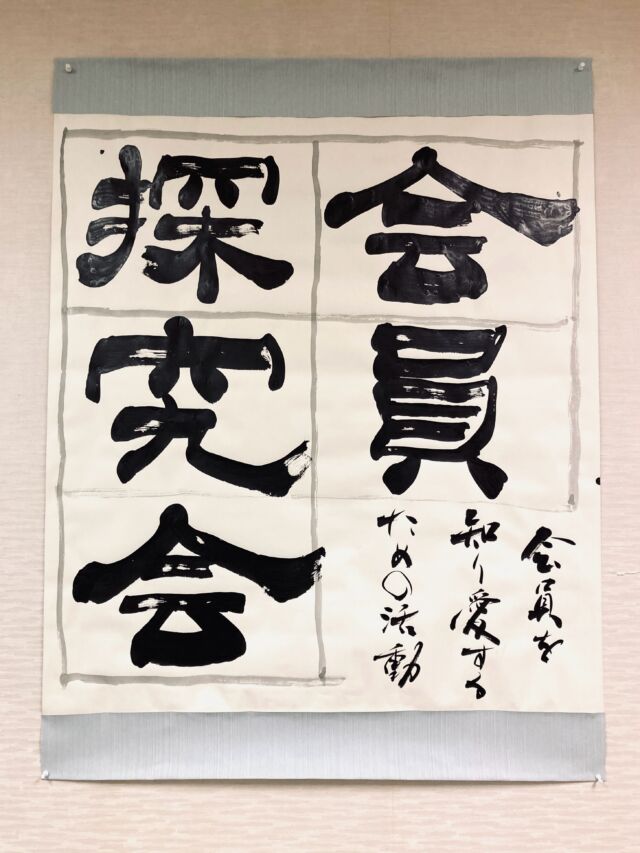 会員
探究会
会員を
知り愛する
ための活動